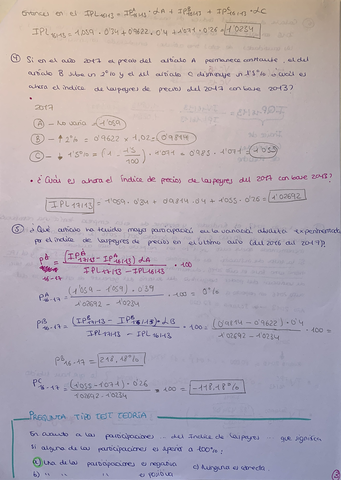 Entonces en el IPL16/13 = IPA16/13 · αA + IPB16/13 · αB + IPC16/13 · αC
IPL16/13 = 1'059 · 0'34 + 0'9622 · 0'4 + 1'071 · 0'26 = 1'0234
④ Si en el año 2017 el precio del artículo A permanece constante, el del
artículo B sube un 2% y el del artículo C disminuye un 1'5% ¿cuál es
ahora el índice de Laspeyres de precios del 2017 con base 2013?
• 2017
Ⓐ - No varía 1'059
Ⓑ - ↑ 2% = 0'9622 × 1,02 = 0'9814
Ⓒ - ↓ 1'5% = (1 - 1'5/100) · 1'071 = 0'985 · 1'071 = 1'055
• ¿Cuál es ahora el índice de precios de Laspeyres del 2017 con base 2013?
IPL17/13 = 1'059 · 0'34 + 0'9814 · 0'4 + 1'055 · 0'26 = 1'02692
⑤ ¿Qué artículo ha tenido mayor participación en la variación absoluta experimentada
por el índice de Laspeyres de precios en el último año (del 2016 del 2017)?
16-17 = (IP17/13 - IP16/13) αA / IPL17/13 - IPL16/13 · 100
PA16-17 = (1'059 - 1'059) · 0'34 / 1'02692 - 1'0234 · 100 = 0%
PB16-17 = (IPB17/13 - IPB16/13) · αB / IPL17/13 - IPL16/13 · 100 = (0'9814 - 0'9622) · 0'4 / 1'02692 - 1'0234 · 100 =
PB16-17 = 218,18%
PC16-17 = (1'055 - 1'071) · 0'26 / 1'02692 - 1'0234 · 100 = -118.18%
PREGUNTA TIPO TEST TEORÍA:
En cuanto a las participaciones del Índice de Laspeyres que significa
si alguna de las participaciones es superior a 100%:
a) Una de las participaciones es negativa c) Ninguna es correcta.
b) " " " " es positiva